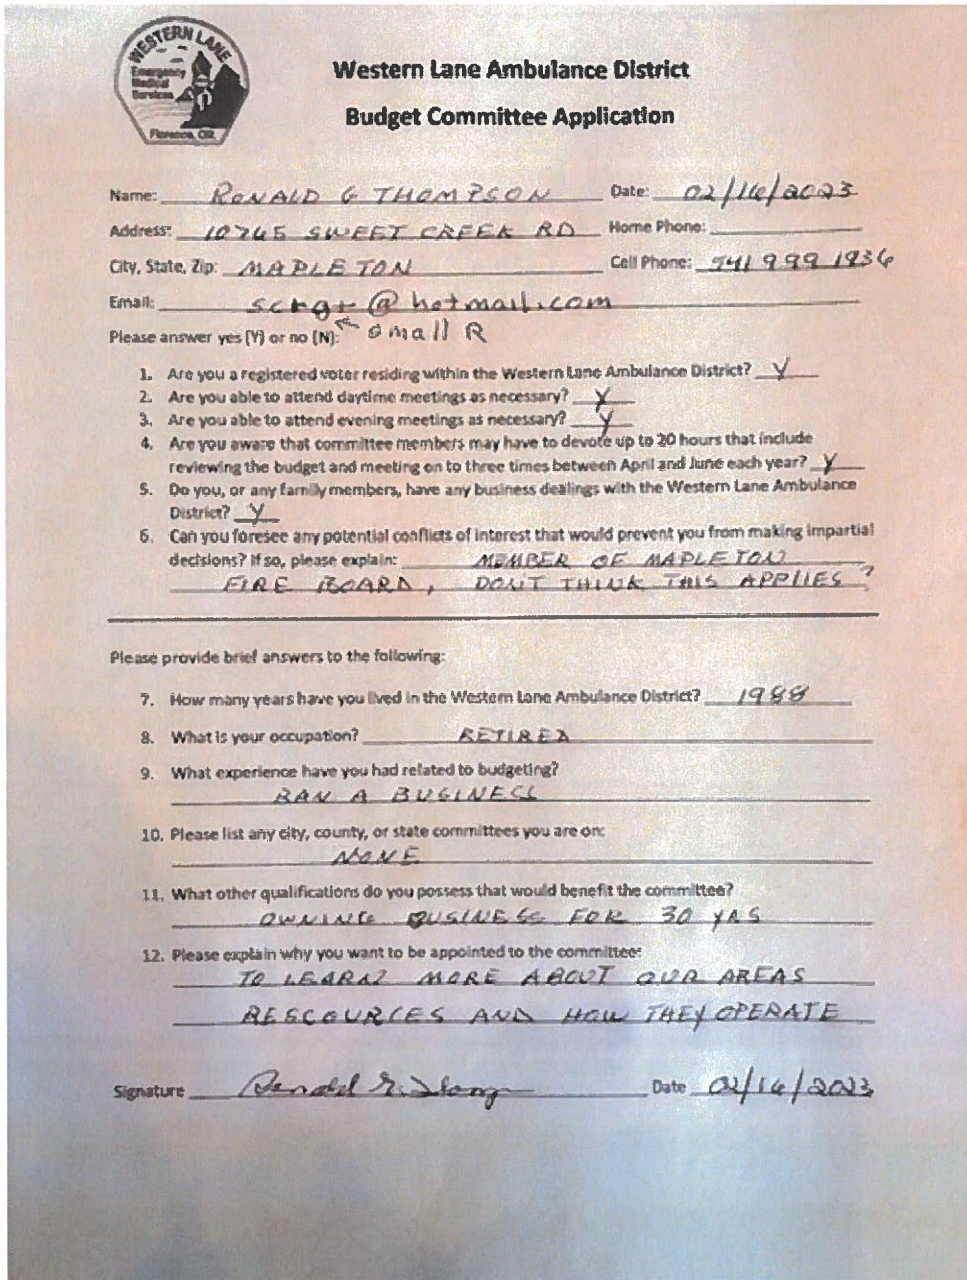 WESTERN LANE
Emergency
Medical
Services
Florence, OR.
Western Lane Ambulance District
Budget Committee Application
Name: RONALD G THOMPSON Date: 02/16/2023
Address: 10765 SWEET CREEK RD Home Phone:
City, State, Zip: MAPLETON Cell Phone: 541 999 1836
Email: scrgr@hotmail.com
Please answer yes (Y) or no (N): small R
1. Are you a registered voter residing within the Western Lane Ambulance District? Y
2. Are you able to attend daytime meetings as necessary? Y
3. Are you able to attend evening meetings as necessary? Y
4. Are you aware that committee members may have to devote up to 20 hours that include
reviewing the budget and meeting on to three times between April and June each year? Y
5. Do you, or any family members, have any business dealings with the Western Lane Ambulance
District? Y
6. Can you foresee any potential conflicts of interest that would prevent you from making impartial
decisions? If so, please explain: MEMBER OF MAPLETON
FIRE BOARD, DON'T THINK THIS APPLIES?
Please provide brief answers to the following:
7. How many years have you lived in the Western Lane Ambulance District? 1988
8. What is your occupation? RETIRED
9. What experience have you had related to budgeting?
RAN A BUSINESS
10. Please list any city, county, or state committees you are on:
NONE
11. What other qualifications do you possess that would benefit the committee?
OWNING BUSINESS FOR 30 YRS
12. Please explain why you want to be appointed to the committee:
TO LEARN MORE ABOUT OUR AREAS
RESCOURCES AND HOW THEY OPERATE
Signature Ronald G. Thomp Date 02/16/2023